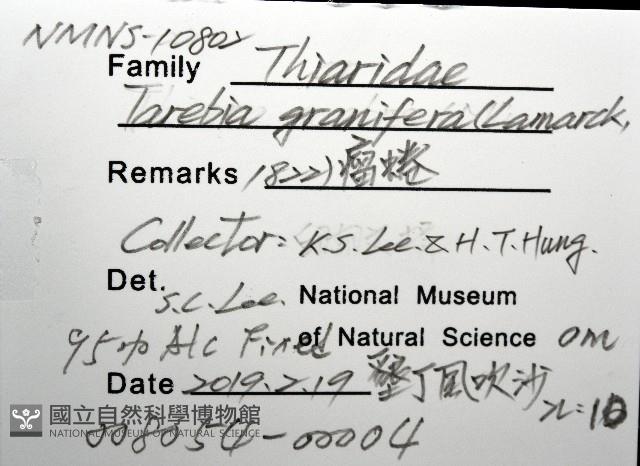 NMNS-10802
Family Thiaridae
Tarebia granifera (Lamarck,
Remarks 1822) 瘤蜷
Collector: K.S. Lee. & H.T. Hung.
Det. S.C. Lee. National Museum
95% Alc Fixed of Natural Science 0m
Date 2019.2.19 墾丁風吹沙
n=10
國立自然科學博物館
NATIONAL MUSEUM OF NATURAL SCIENCE
008054-00004